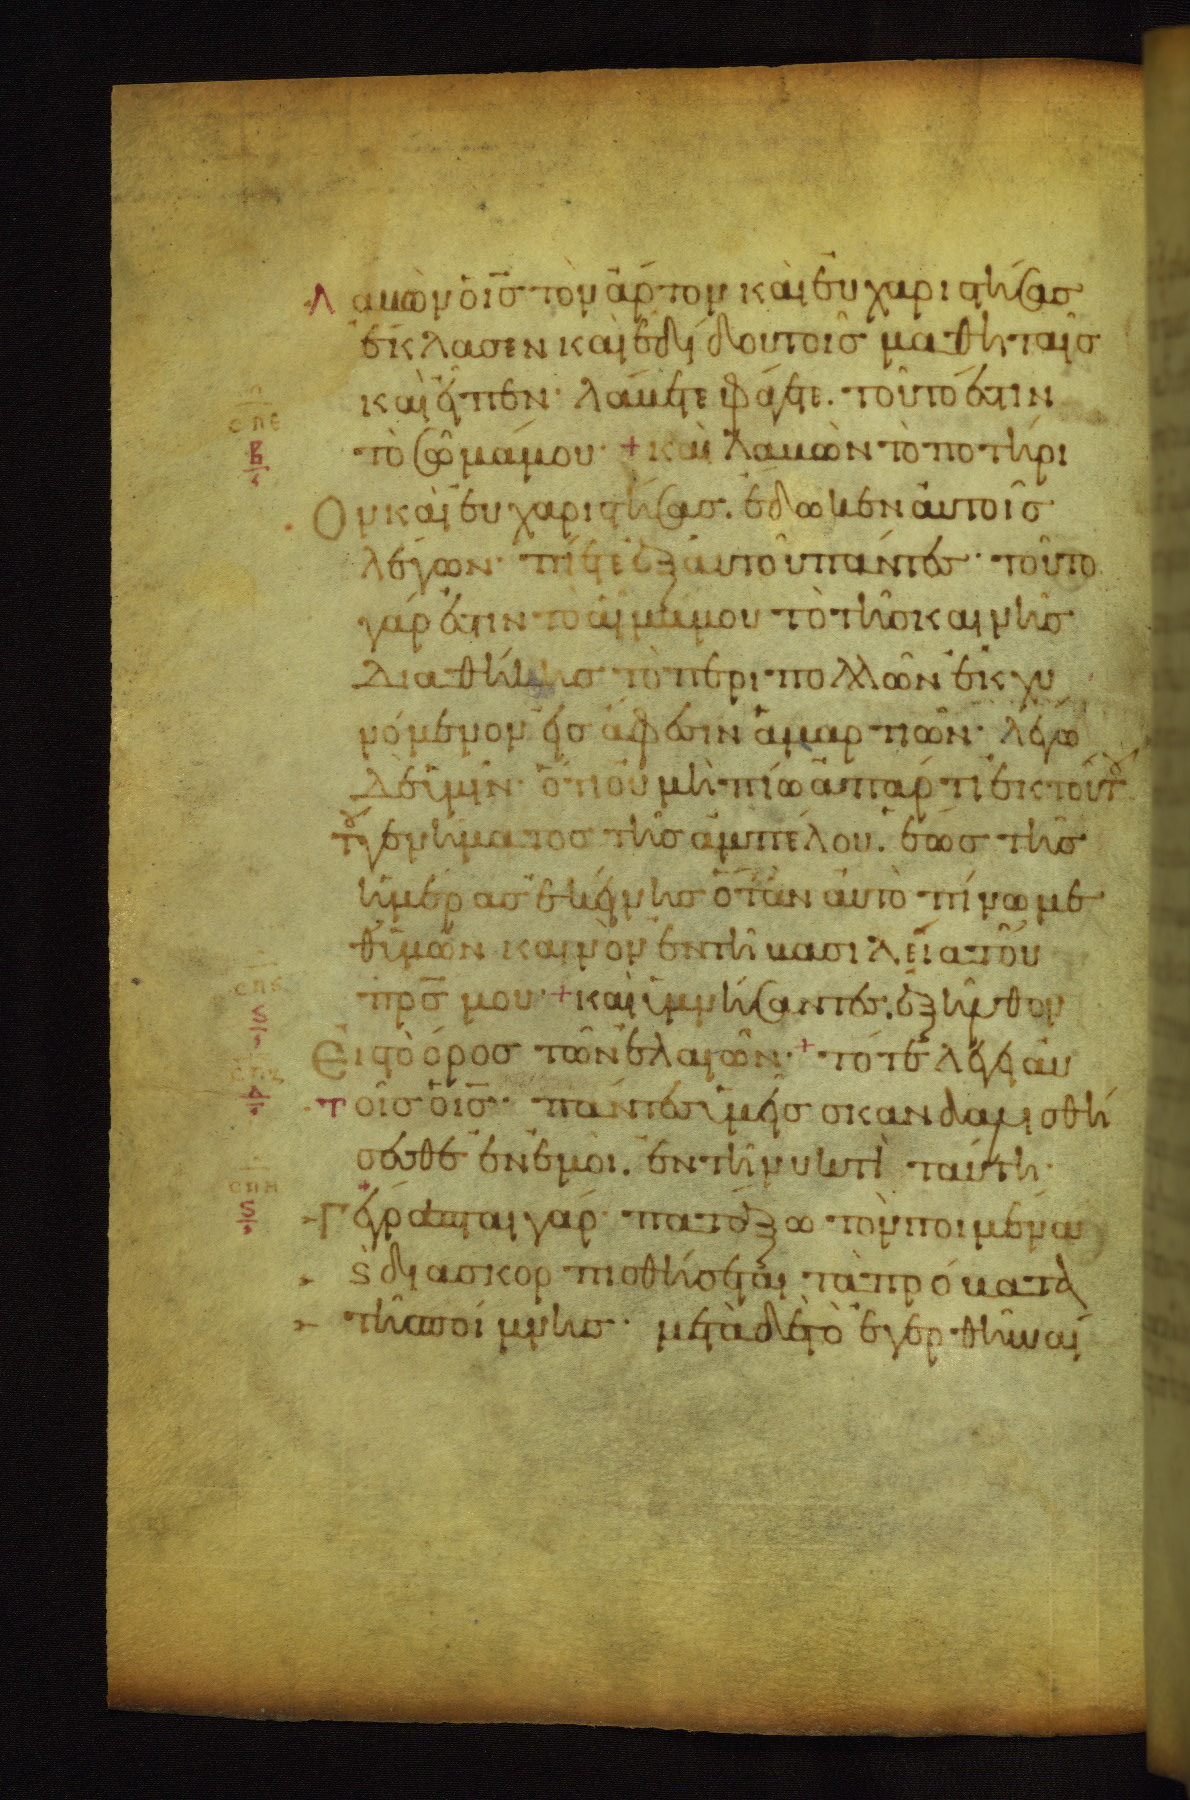 λαβὼν ὁ ι̅σ̅ τὸν ἄρτον καὶ εὐχαριστήσας
ἔκλασεν καὶ ἐδίδου τοῖς μαθηταῖς
καὶ εἶπεν· λάβετε φάγετε. τοῦτό ἐστιν
σπε
τὸ σῶμά μου· + καὶ λαβὼν τὸ ποτήρι
β
ον καὶ εὐχαριστήσας. ἔδωκεν αὐτοῖς
λέγων· πίετε ἐξ αὐτοῦ πάντες· τοῦτο
γάρ ἐστιν τὸ αἷμά μου τὸ τῆς καινῆς
διαθήκης τὸ περὶ πολλῶν ἐκχυ
νόμενον εἰς ἄφεσιν ἁμαρτιῶν· λέγω
δὲ ὑμῖν· ὅτι οὐ μὴ πίω ἀπάρτι ἐκ τούτου
τοῦ γενήματος τῆς ἀμπέλου. ἕως τῆς
ἡμέρας ἐκείνης ὅταν αὐτὸ πίνω με
θ' ὑμῶν καινὸν ἐν τῇ βασιλείᾳ τοῦ
σπς
π̅ρ̅σ̅ μου· + καὶ ὑμνήσαντες. ἐξῆλθον
ς
εἰς τὸ ὄρος τῶν ἐλαιῶν· + τότε λέγει αὐ
σπζ
τοῖς ὁ ι̅σ̅· πάντες ὑμεῖς σκανδαλισθή
δ
σεσθε ἐν ἐμοί. ἐν τῇ νυκτὶ ταύτῃ·
σπη
+ γέγραπται γάρ· πατάξω τὸν ποιμένα
ς
ϗ διασκορπισθήσεται τὰ πρόβατα
τῆς ποίμνης· μετὰ δὲ τὸ ἐγερθῆναί